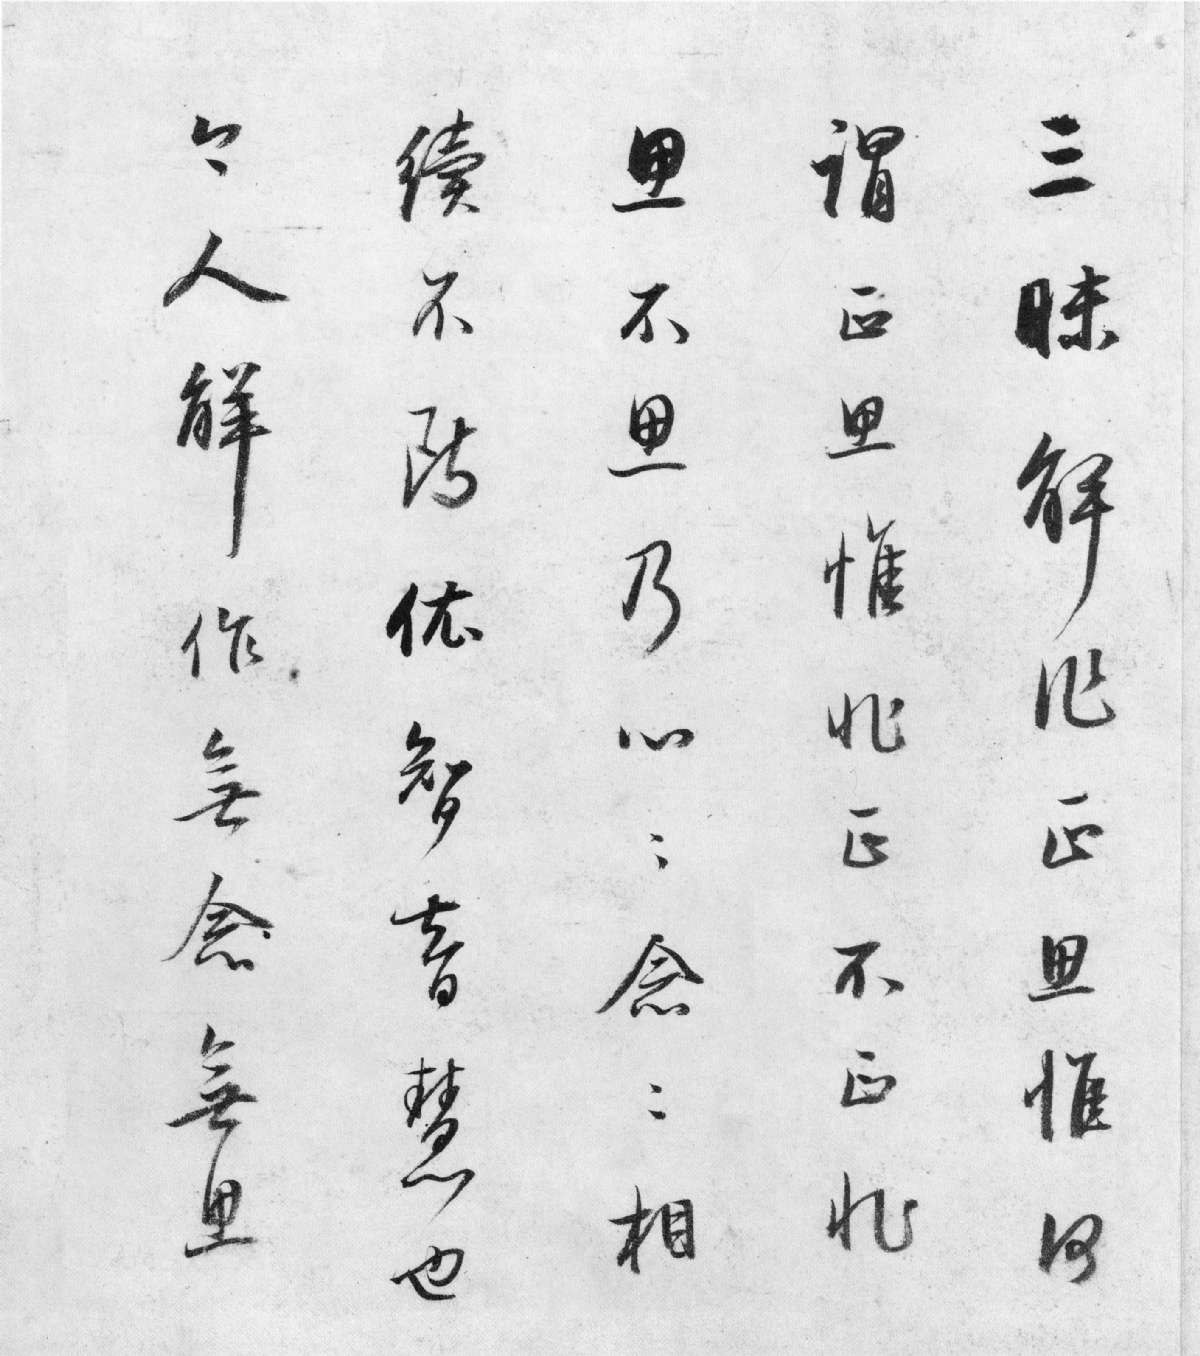 三昧解作正思惟何
謂正思惟非正不正非
思不思乃心〻念〻相
續不依智慧也
今人解作無念無思